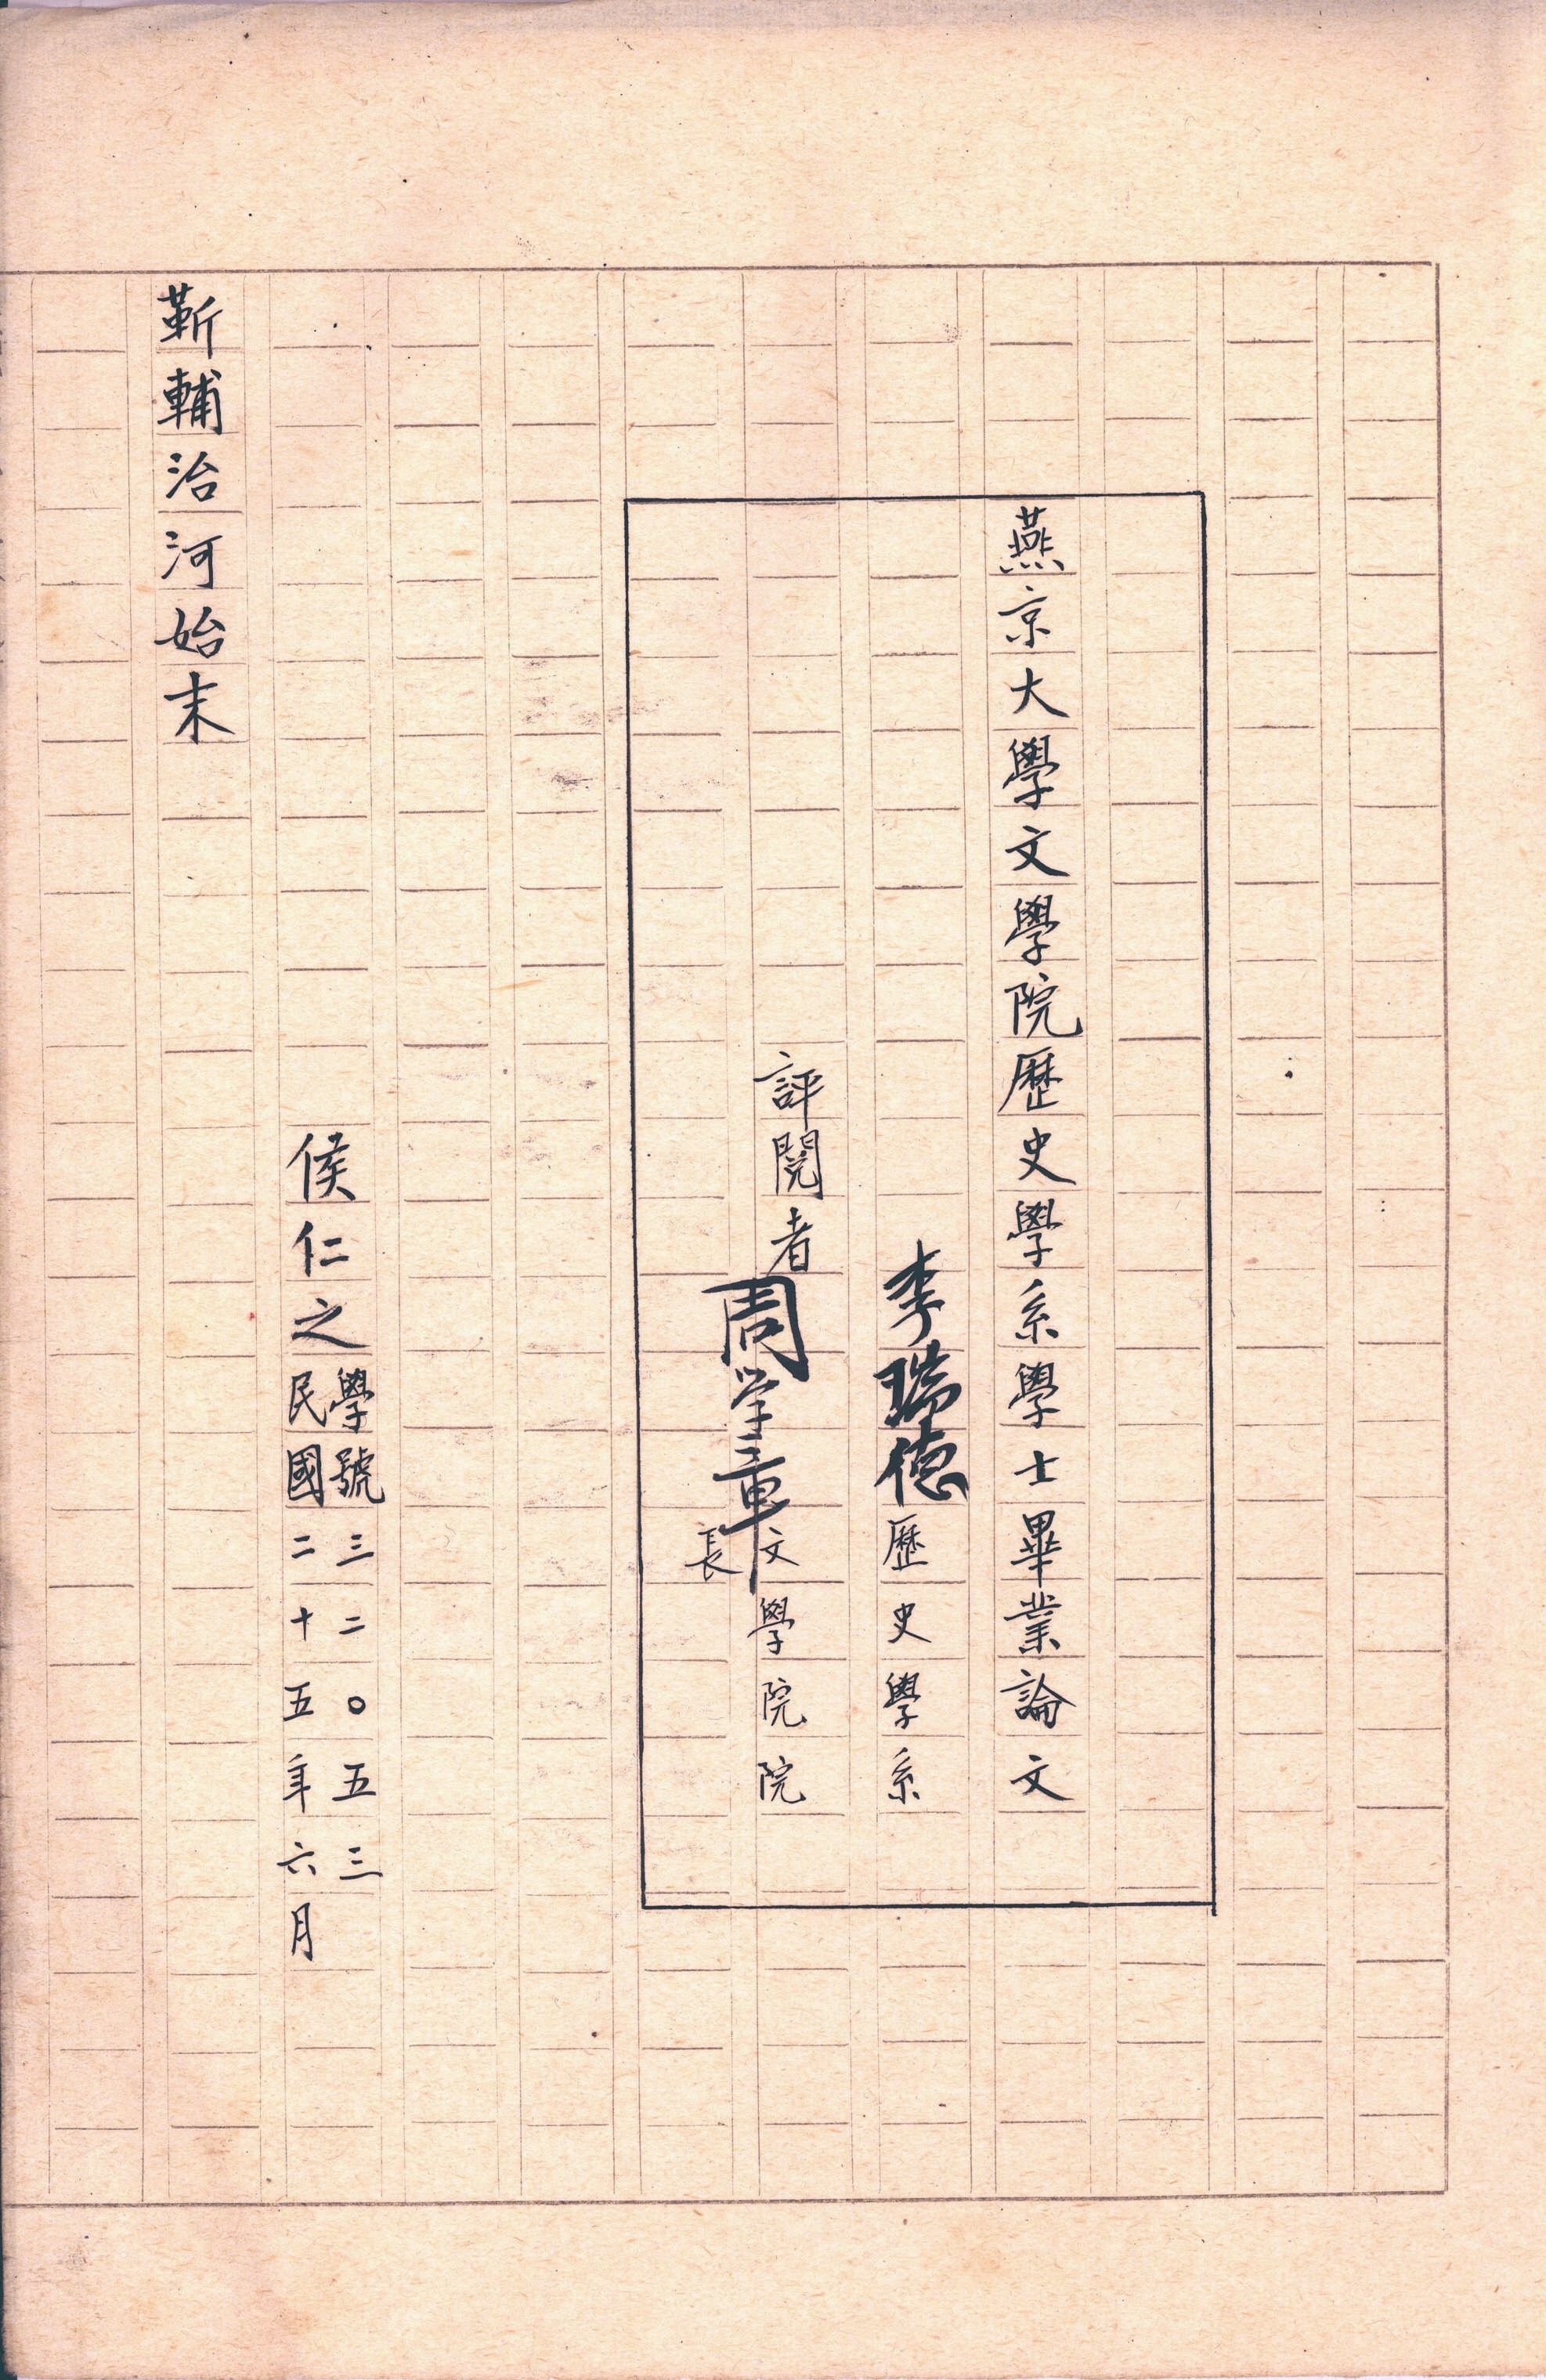 燕京大學文學院歷史學系學士畢業論文
李瑞德歷史學系
評閱者
周学章文學院院
長
學號三二〇五三
侯仁之
民國二十五年六月
靳輔治河始末